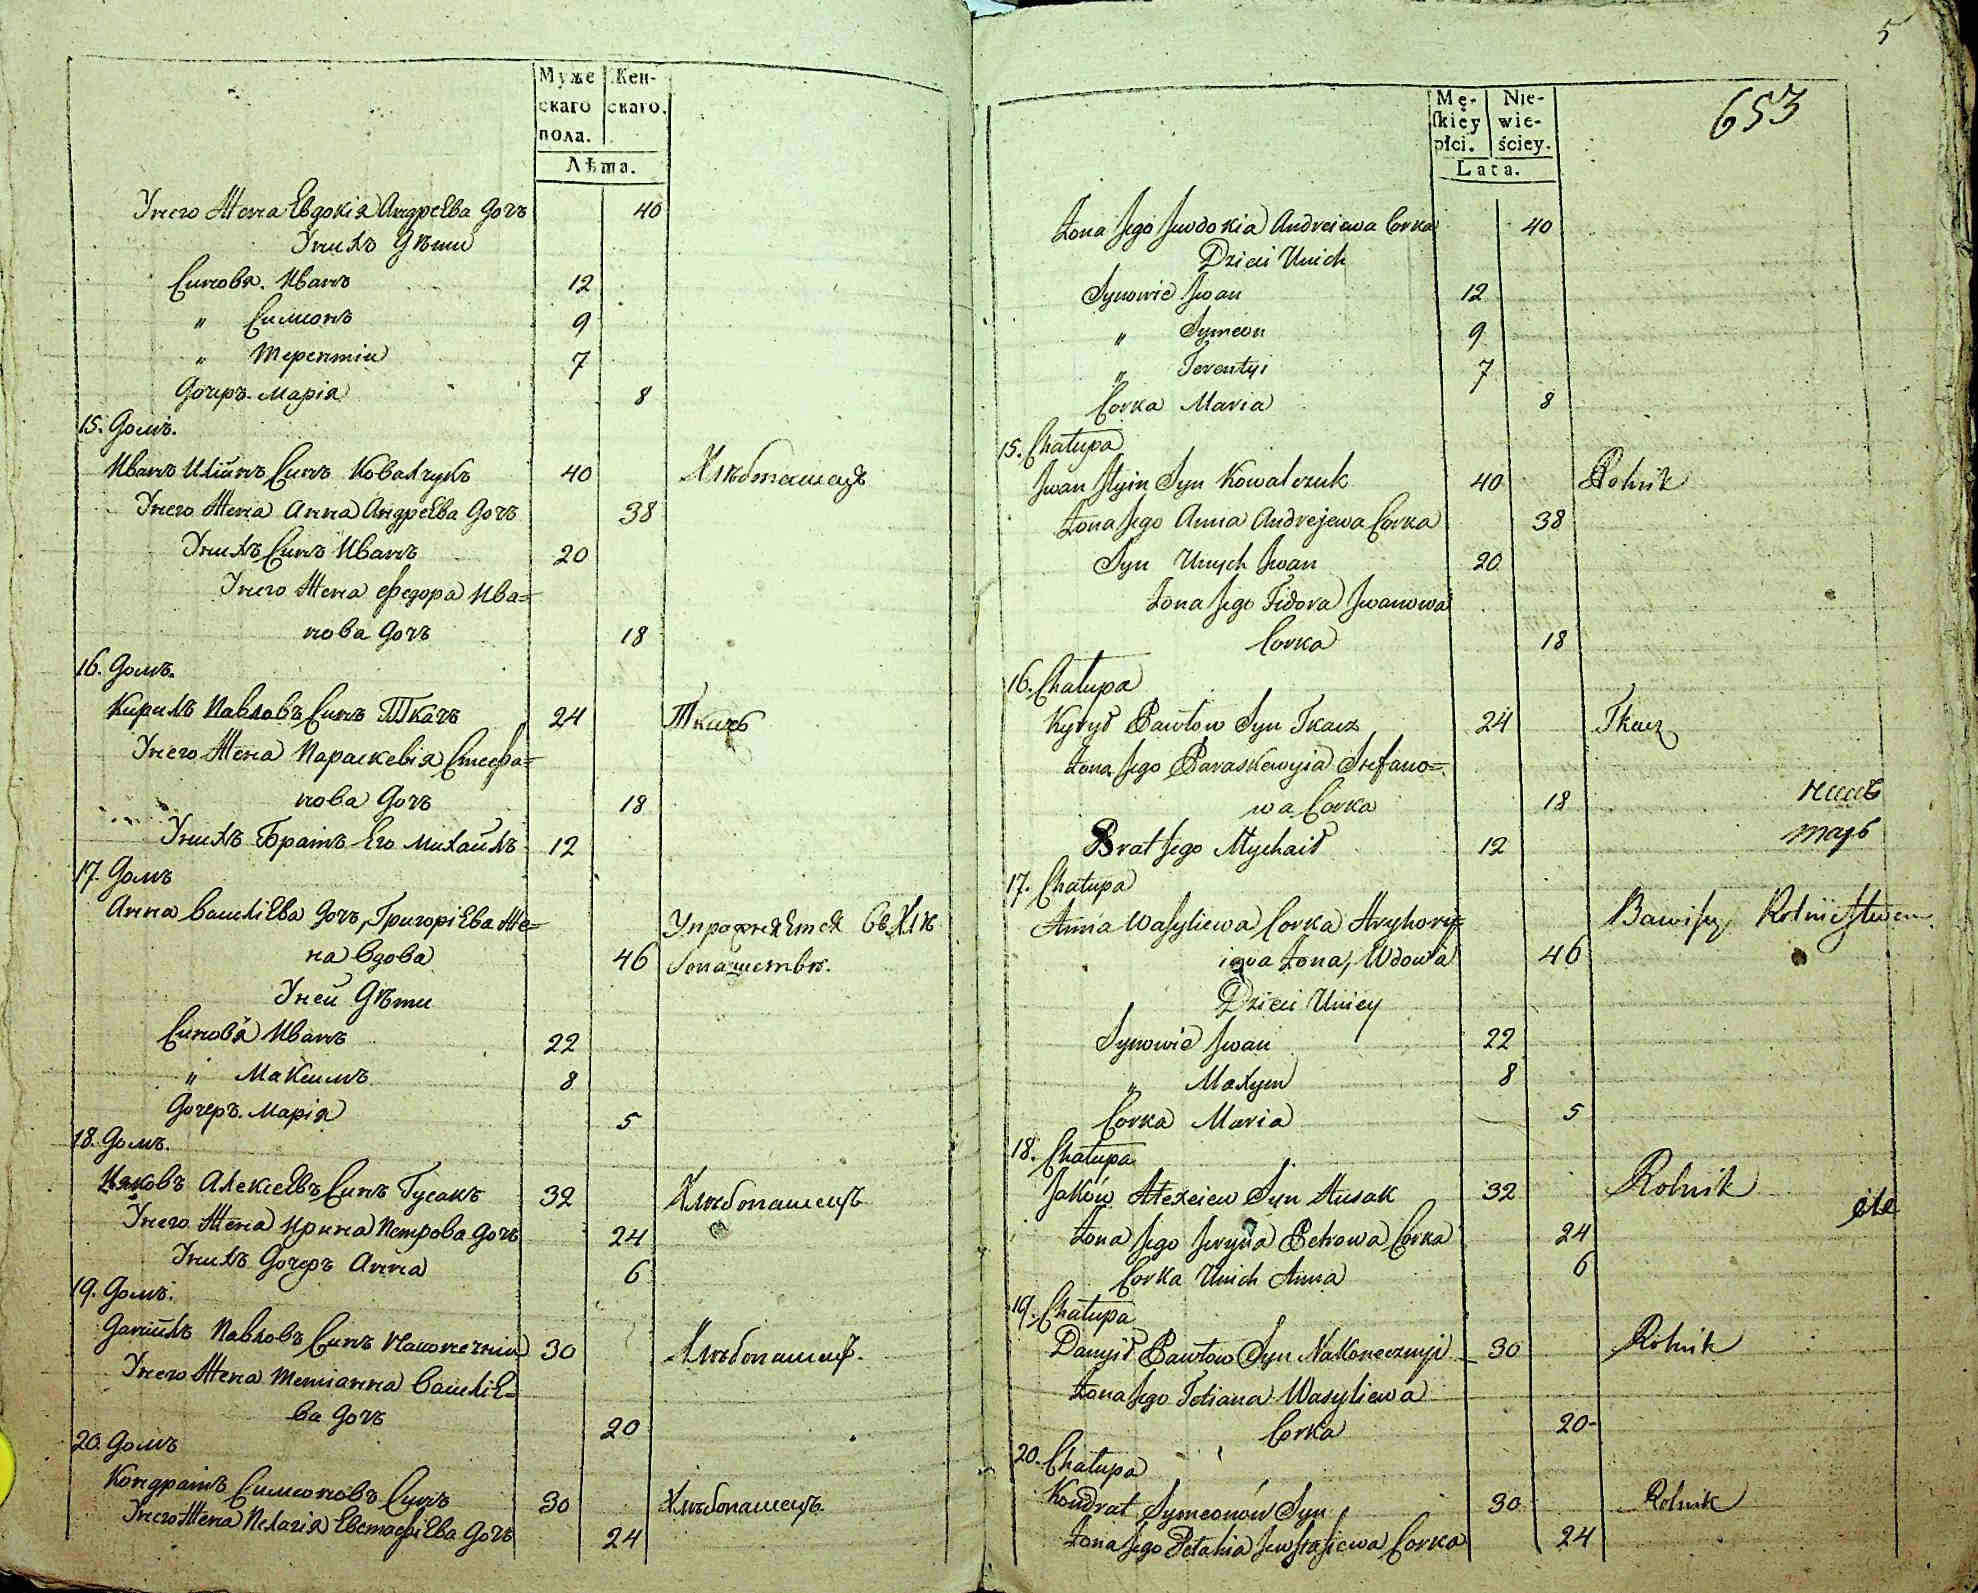 Муже Жен-
скаго скаго.
пола.
Лѣта.
Унего Жена Евдокія Андреева Дочь 40
Унихъ Дѣти
Синовя. Иванъ 12
" Симионъ 9
" Терентіи 7
Дочеръ. Марія 8
15. Домъ.
Иванъ Илїинъ Синъ Ковалчукъ 40 Хлѣбопашецъ
Унего Жена Анна Андреева Дочъ 38
Унихъ Синъ Иванъ 20
Унего Жена Федора Ива=
нова Дочъ 18
16. Домъ.
Кирилъ Павловъ Синъ Ткачъ 24 Ткачъ
Унего Жена Параскевія Стефа=
нова Дочъ 18
Унихъ Братъ Его Михаилъ 12
17. Домъ
Анна Василіева Дочъ, Григоріева Же=
на Вдова 46
Упражняется Въ Хлѣ
бопашествѣ.
Уней Дѣти
Синовя Иванъ 22
" Максимъ 8
Дочеръ. Марія 5
18. Домъ.
Ияковъ Алексеевъ Синъ Гусакъ 32 Хлѣбопашецъ
Унего Жена Ирина Петрова Дочъ 24
Унихъ Дочеръ Анна 6
19. Домъ.
Даніилъ Павловъ Синъ Наконечніи 30 Хлѣбопашецъ.
Унего Жена Тетіанна Василіе=
ва Дочъ 20
20. Домъ
Кондратъ Симионовъ Синъ 30 Хлѣбопашецъ.
Унего Жена Пелагія Евстафіева Дочъ 24
5
653
Mę- Nie-
skiey wie-
płci. ściey.
Lata.
Żona Jego Jewdokia Andreiewa Corka 40
Dzieci Unich
Synowie Jwan 12
" Symeon 9
" Terentyi 7
Corka Maria 8
15. Chałupa
Jwan Jlyin Syn Kowalczuk 40 Rolnik
Żona Jego Anna Andrejewa Corka 38
Syn Unych Jwan 20
Żona Jego Fidora Jwanowa
Corka 18
16. Chałupa
Kyrył Pawłow Syn Tkacz 24 Tkacz
Żona Jego Paraskewyia Stefano=
wa Corka 18
Brat Jego Mychaił 12
17. Chałupa
Anna Wasyliewa Corka Hryhory=
iewa Żona, Wdowa 46
Bawi się Rolnictwem
Dzieci Uniey
Synowie Jwan 22
" Maxym 8
Corka Maria 5
18. Chałupa
Jaków Alexeiew Syn Husak 32 Rolnik
Żona Jego Jeryna Petrowa Corka 24
Corka Unich Anna 6
19. Chałupa
Danył Pawłow Syn Nakonecznyi 30 Rolnik
Żona Jego Tetiana Wasyliewa
Corka 20
20. Chałupa
Kondrat Symeonów Syn 30 Rolnik
Żona Jego Pełahia Jewstafiewa Corka 24